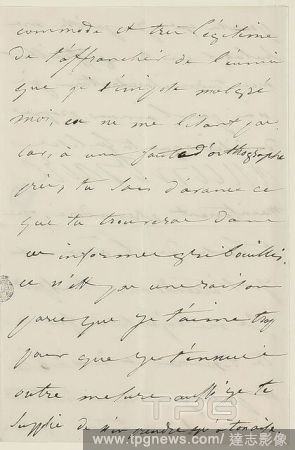 commode et très légitime
de t'affranchir de l'ennui
que je t'impose malgré
moi, en ne me lisant pas
car, à une faute d'orthographe
près, tu sais d'avance ce
que tu trouveras dans
ce informe gribouillis.
ce n'est pas une raison
parce que je t'aime trop
pour que je t'ennuie
outre mesure aussi je te
supplie de n'en prendre qu'à ton aise
TPG
www.tpgnews.com / 達志影像